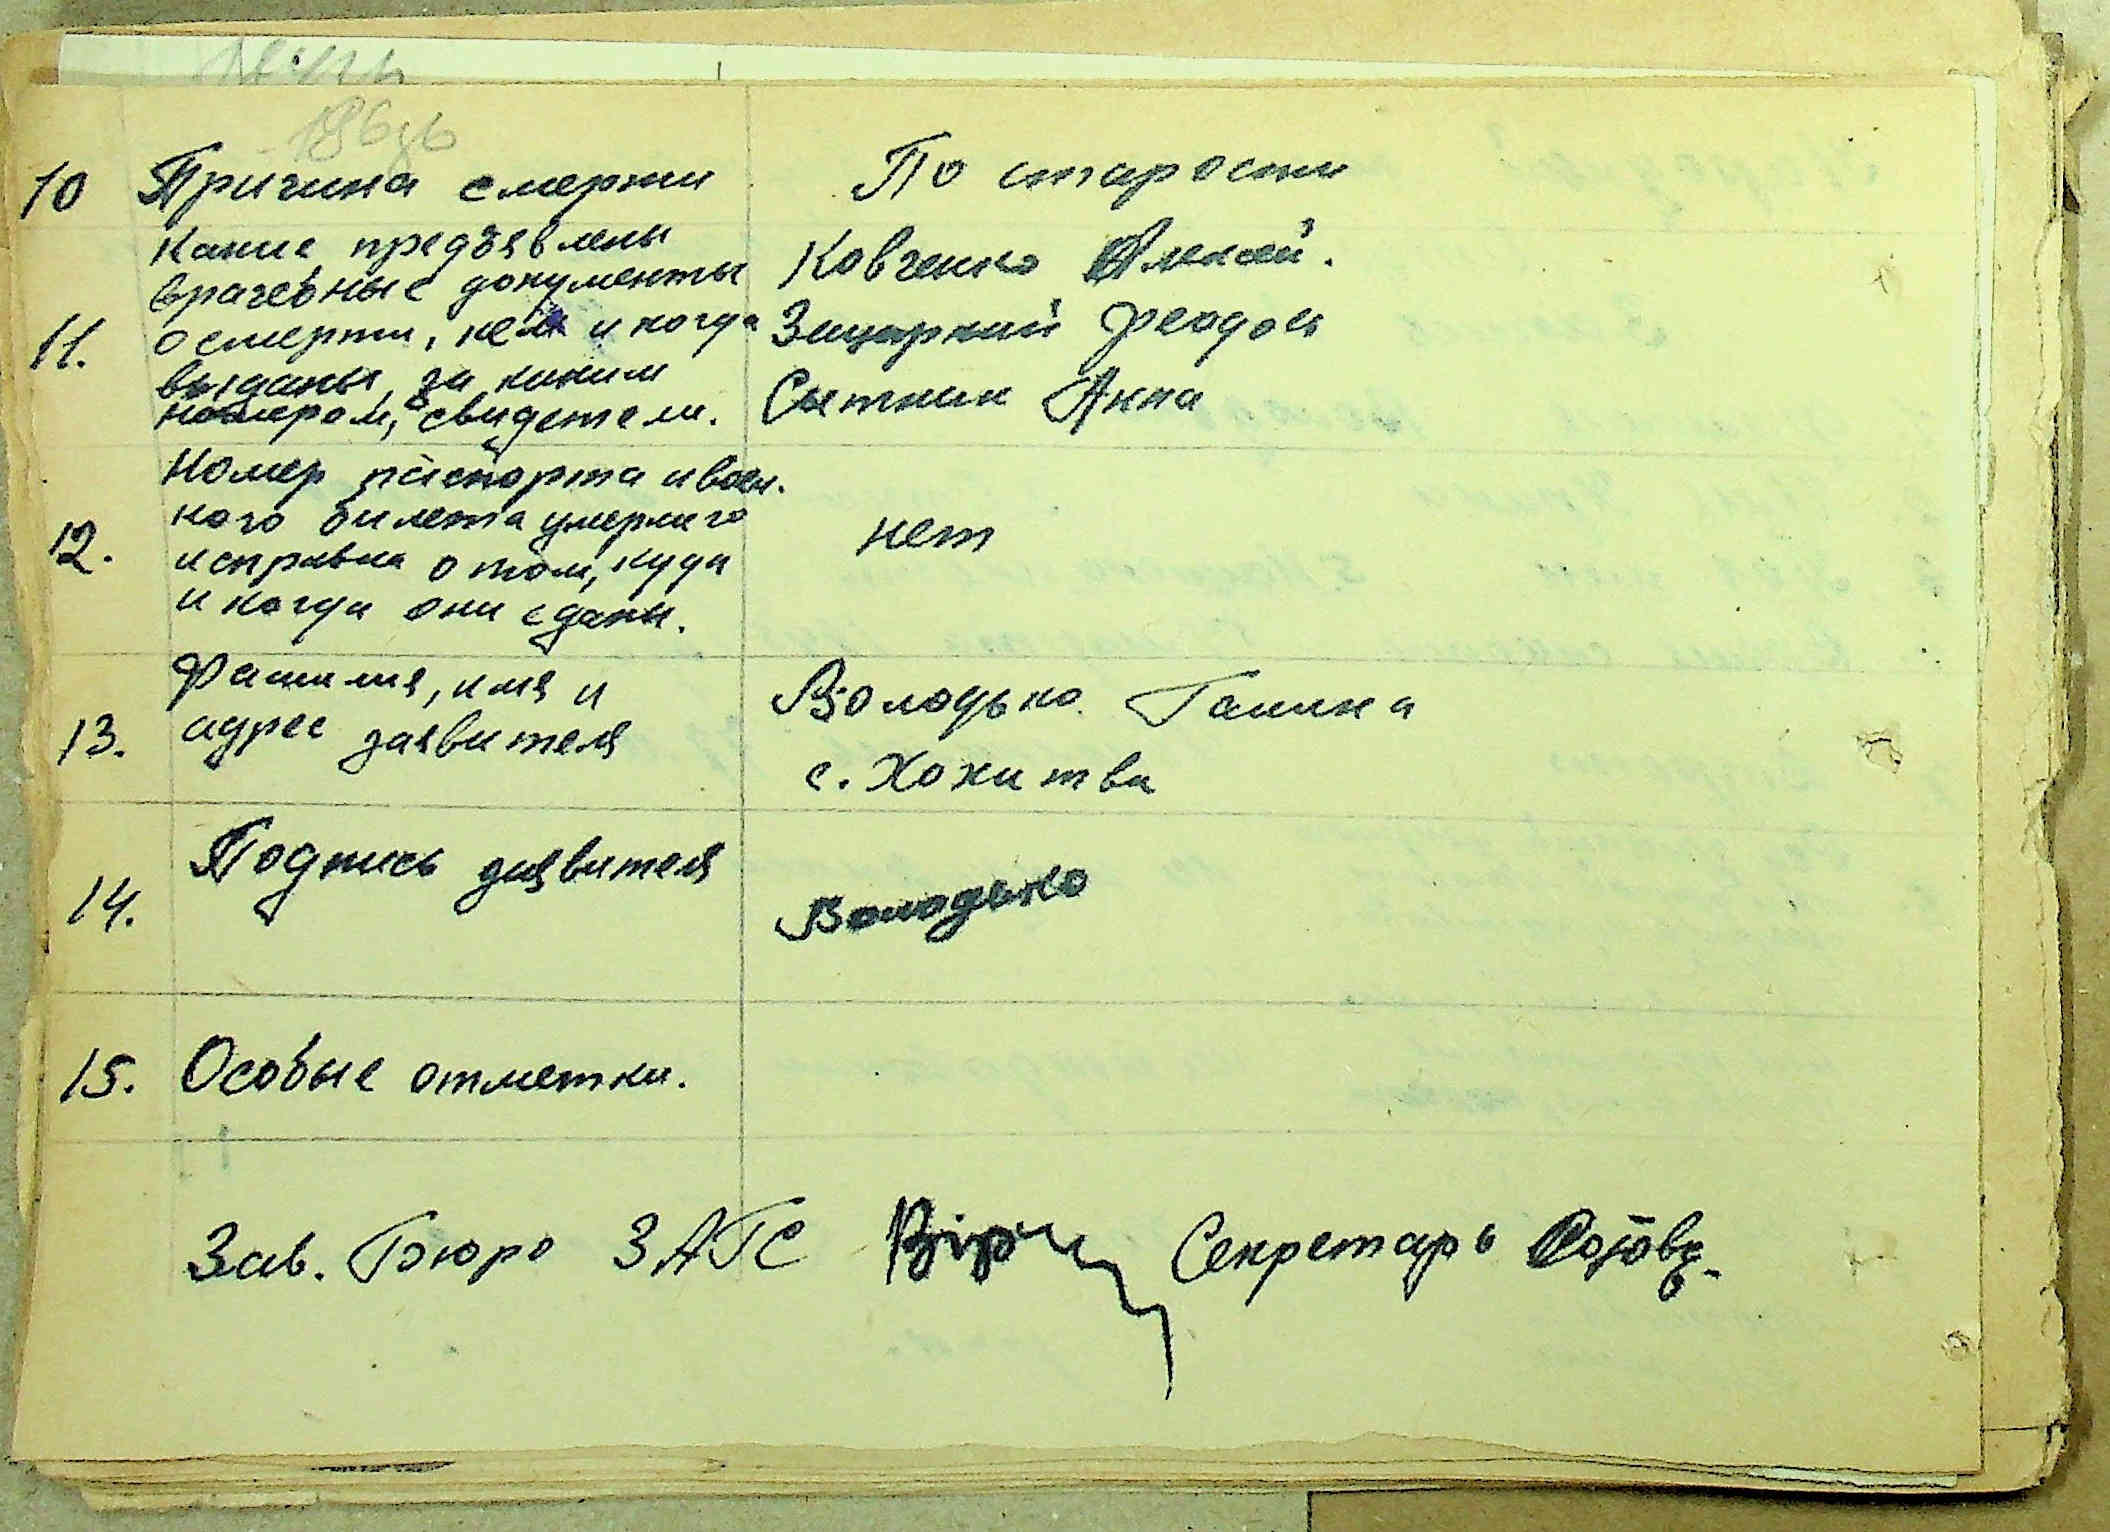 10 Причина смерти По старости
Какие предъявлены
врачебные документы Ковченко Алексей.
11. о смерти, кем и когда Феодос
выданы, за каким
номером, свидетели. Сытник Анна
Номер паспорта и воен.
ного билета умершего
12. и справка о том, куда нет
и когда они сданы.
Фамилия, имя и Володько Галина
13. адрес заявителя с. Хохитва
14. Подпись заявителя Володько
15. Особые отметки.
Зав. Бюро ЗАГС Секретарь